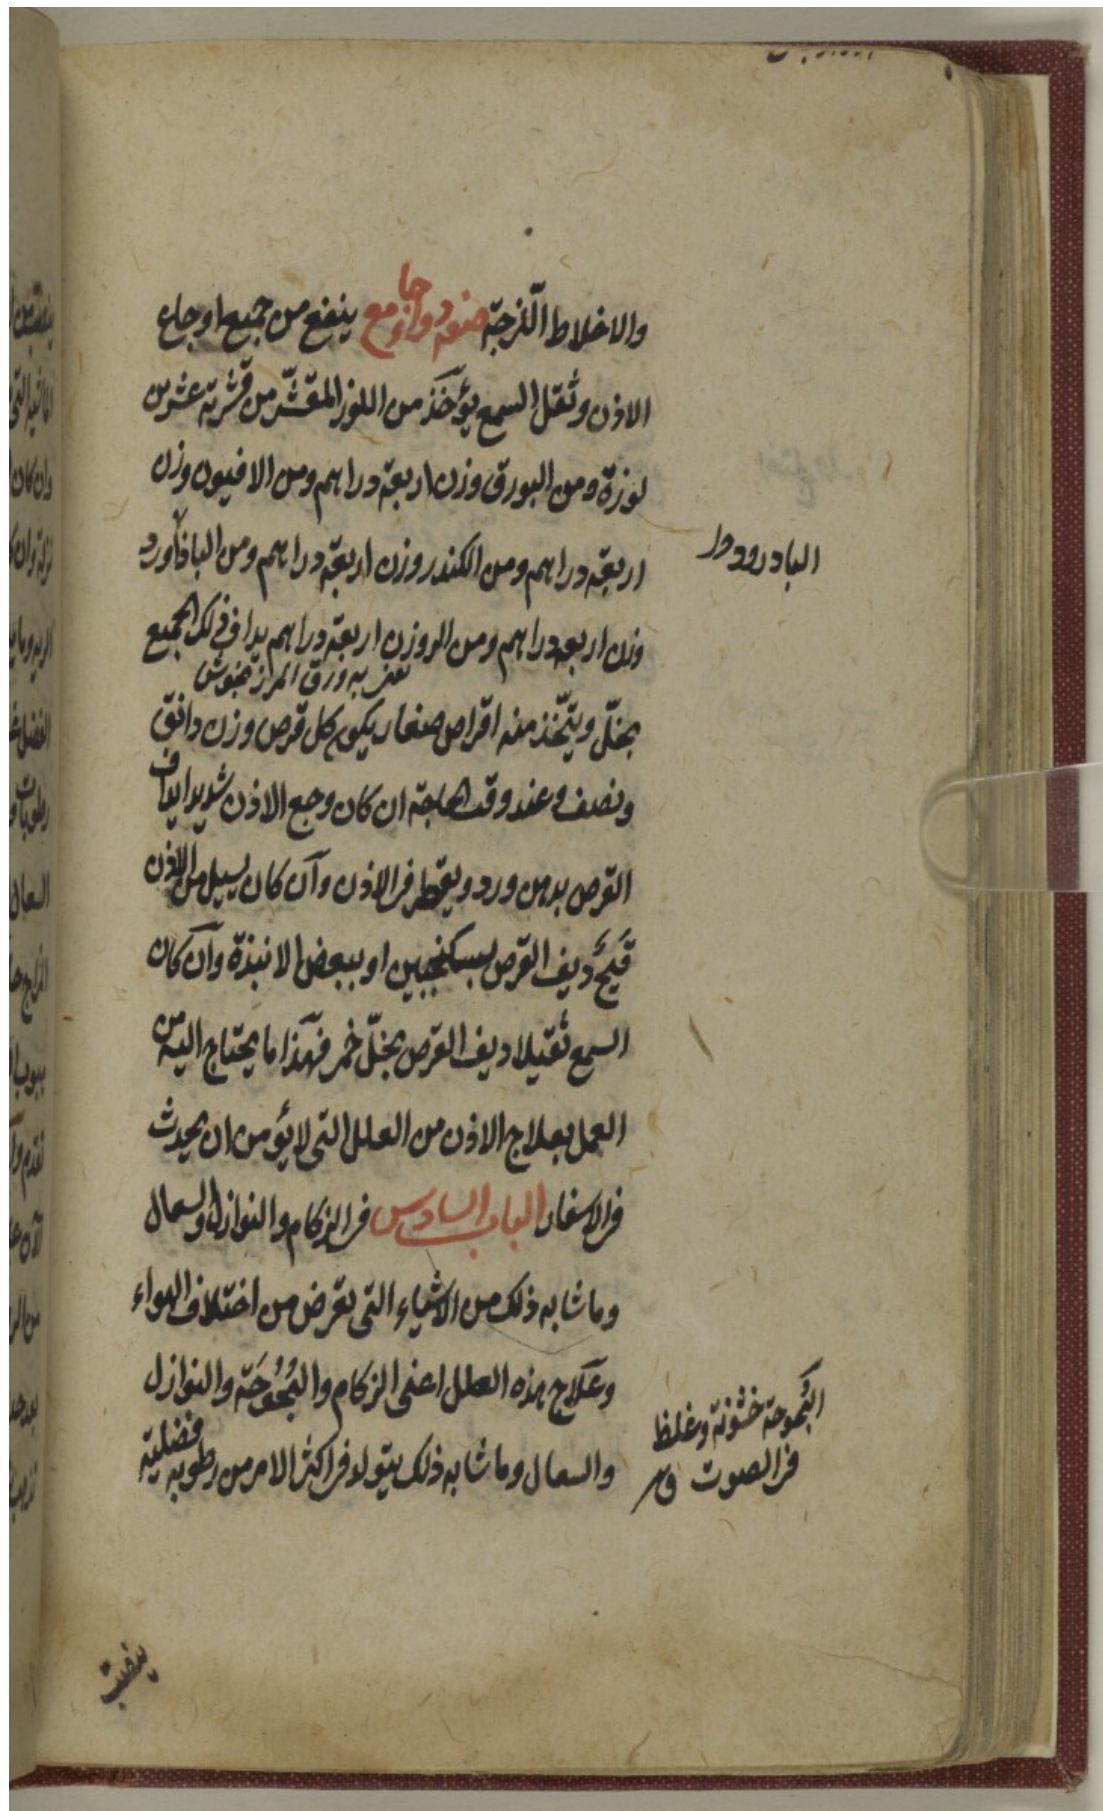 والاخلاط اللّزجة صنعة دواء جامع ينفع من جميع اوجاع
الاذن وثقل السمع يؤخذ من اللوز المقشّر من قشرته عشرين
لوزة ومن البورق وزن اربعة دراهم ومن الافيون وزن
اربعة دراهم ومن الكندر وزن اربعة دراهم ومن الباذآورد
البادرود
وزن اربعة دراهم ومن الروزن اربعة دراهم يداف ذلك الجميع
بخلّ ويتّخذ منه اقراص صغار يكون كل قرص وزن دانق
ونصف وعند وقت الحاجة ان كان وجع الاذن شديدا يداف
القرص بدهن ورد ويقطر فى الاذن وآن كان يسيل من الاذن
قَيحٌ ديف القرص بسكنجبين او ببعض الانبذة وآن كان
السمع ثقيلا ديف القرص بخلّ خمر فهذا ما يحتاج اليه من
العمل بعلاج الاذن من العلل التى لا يؤمن ان يحدث
فى الاسفار الباب السادس فى الزكام والنوازل والسعال
وما شابه ذلك من الاشياء التى تعرض من اختلاف الهواء
وعَلاج هذه العلل اعنى الزكام والبُحُوحَة والنوازل
البُحوحة خشونة وغلظ
فى الصوت ق
والسعال وما شابه ذلك يتولد فى اكثر الامر من رطوبة فضلية
ينصبّ